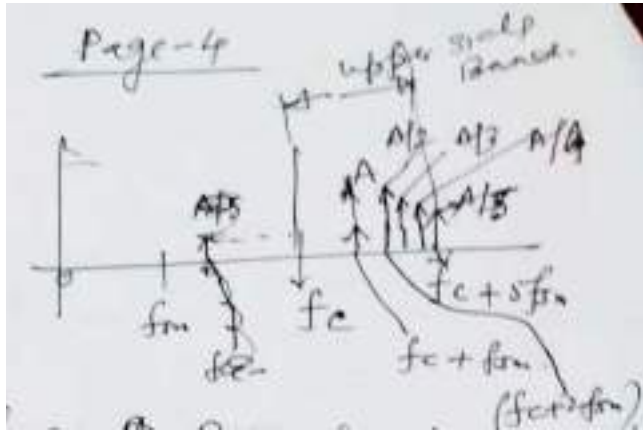 Page-4
upper side
Band.
A/2 A/3 A/4
A
A/5 A/5
fm fc fc + 5fm
fc + fm
(fc+2fm)